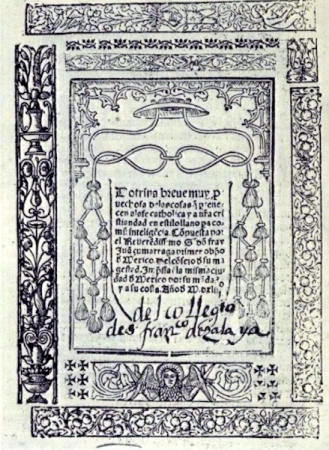 Dotrina breue muy p
uechosa delas cosas q̄ p̄tene
cen ala fe catholica y a n̄ra cri
stiandad en estilo llano pa co
mū inteligēcia. Cōpuesta por
el Reuerēdissimo S. dō fray
Juā çumarraga primer obp̄o
d̄ Mexico. Del cōsejo d̄ su ma
gestad. Imp̄ssa ēla misma ciu
dad d̄ Mexico por su mādado
y a su costa. Año d̄ M.dxliij
del collegio
de s. franco. de zalaya